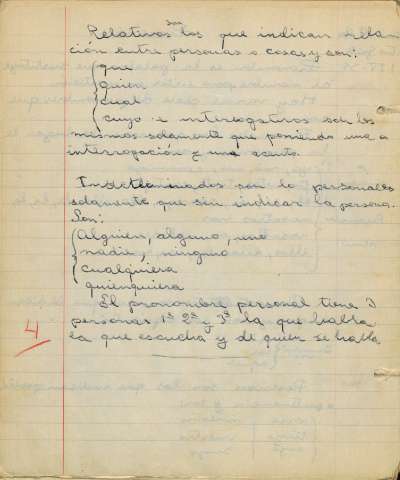 son
Relativos los que indican rela
ción entre personas o cosas y son:
que
quien
cual
cuyo e interrogativos son los
mismos solamente que poniendo una
interrogación y una acento.
Indeterminados son lo personales
solamente que sin indicar la persona.
Son:
Alguien, alguno, uno
nadie, ninguno
cualquiera
quienquiera
El pronombre personal tiene 3
personas 1ª 2ª y 3ª la que habla
la que escucha y de quien se habla
4